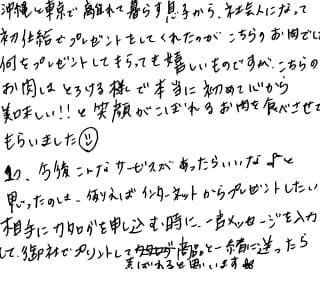 沖縄と東京で離れて暮らす息子から、社会人になって
初仕給でプレゼントをしてくれたのが こちらのお肉でし
何をプレゼントしてもらっても嬉しいものですが、こちらの
お肉は とろける様で本当に初めて心から
美味しい!! と笑顔がこぼれるお肉を食べさせて
もらいました☺
今後こんなサービスがあったらいいな♪と
思ったのは、例えば インターネットからプレゼントしたい
相手にカタログを申し込む時に、一言メッセージを入力
して、御社でプリントして 商品と一緒に送ったら
喜ばれると思います